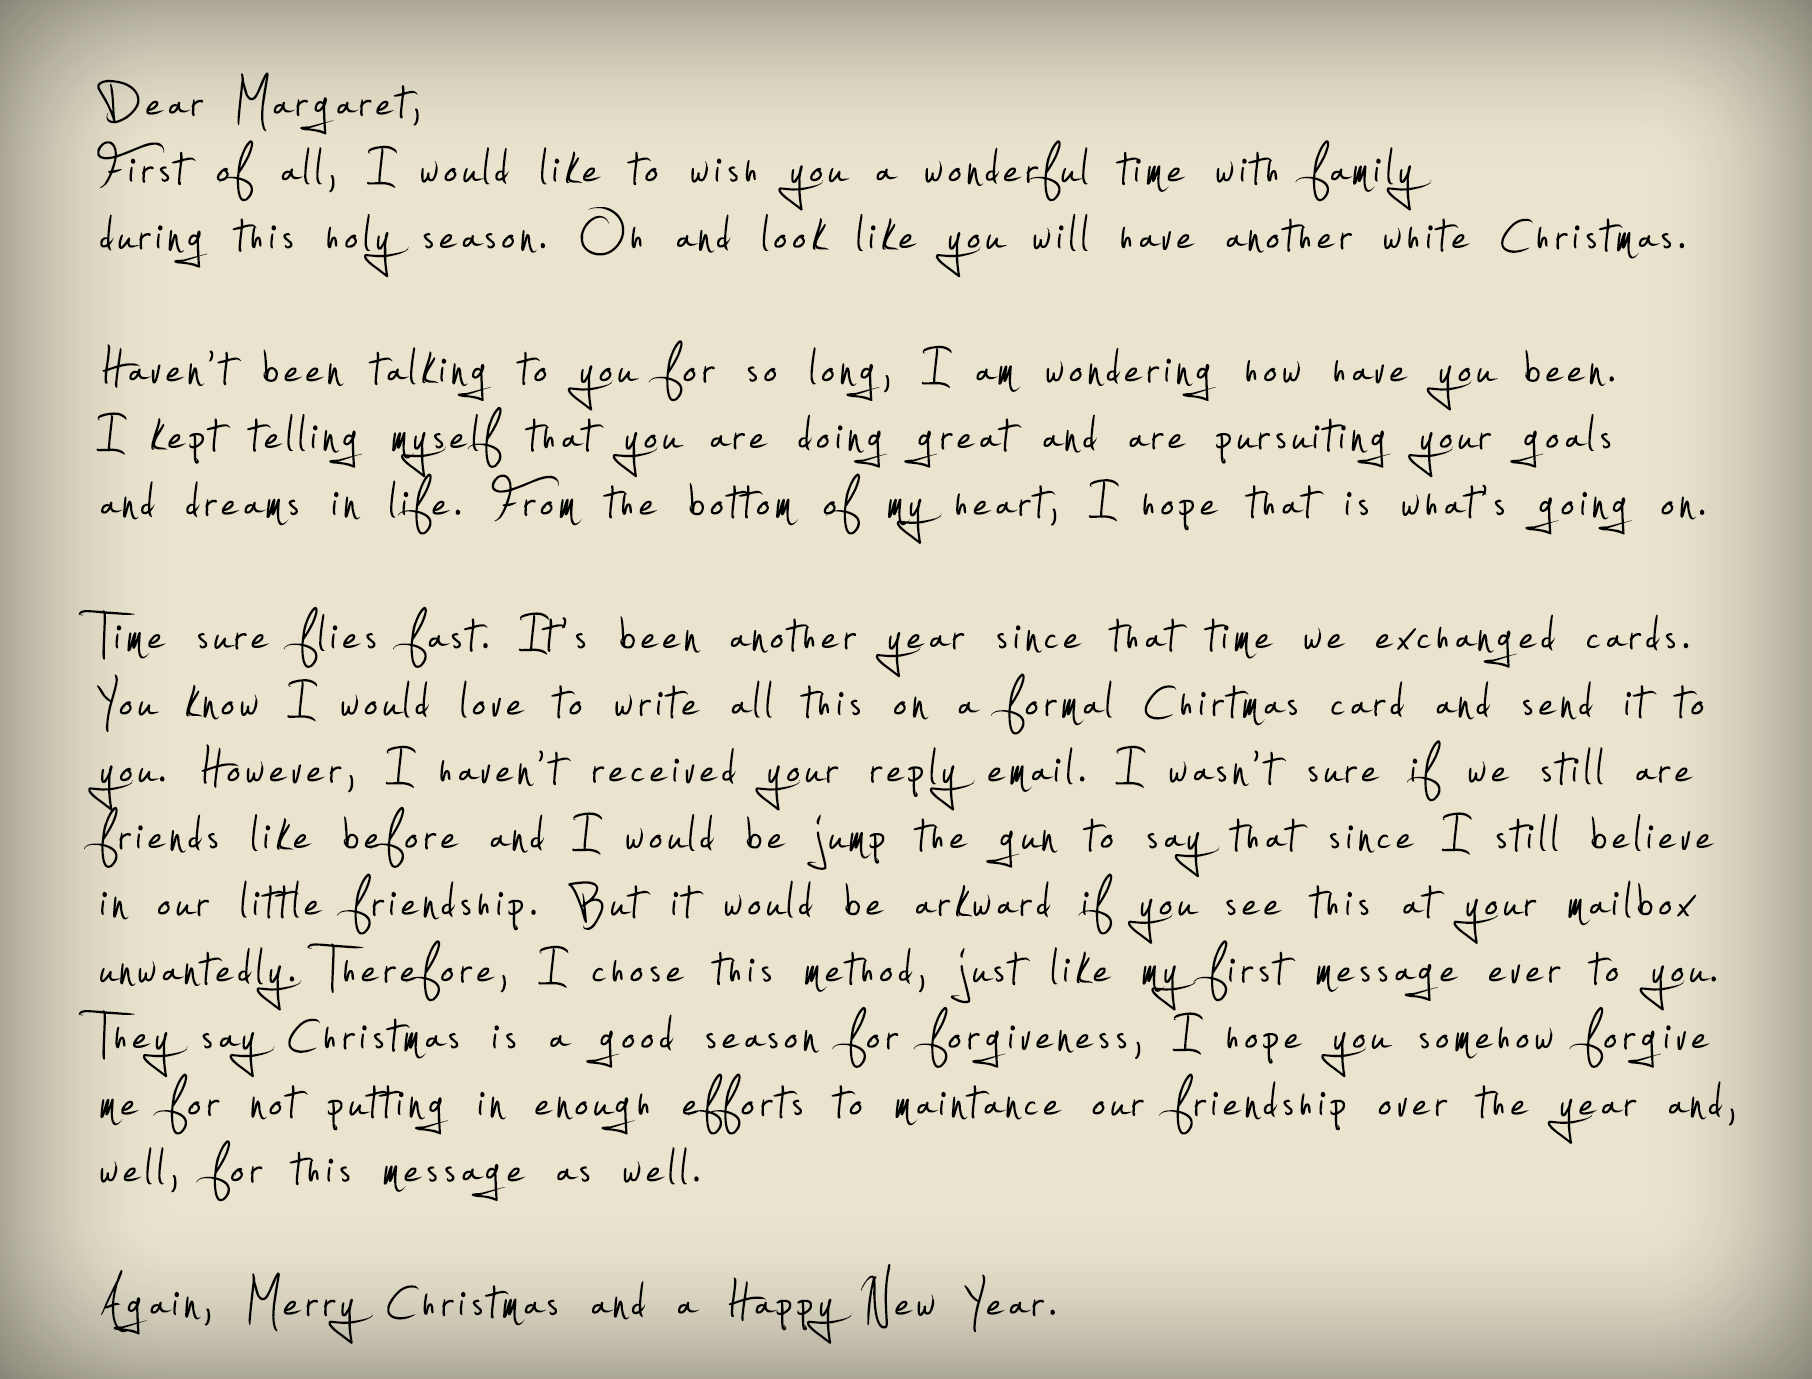 Dear Margaret,
First of all, I would like to wish you a wonderful time with family
during this holy season. Oh and look like you will have another white Christmas.
Haven't been talking to you for so long, I am wondering how have you been.
I kept telling myself that you are doing great and are pursuiting your goals
and dreams in life. From the bottom of my heart, I hope that is what's going on.
Time sure flies fast. It's been another year since that time we exchanged cards.
You know I would love to write all this on a formal Chirtmas card and send it to
you. However, I haven't received your reply email. I wasn't sure if we still are
friends like before and I would be jump the gun to say that since I still believe
in our little friendship. But it would be arkward if you see this at your mailbox
unwantedly. Therefore, I chose this method, just like my first message ever to you.
They say Christmas is a good season for forgiveness, I hope you somehow forgive
me for not putting in enough efforts to maintance our friendship over the year and,
well, for this message as well.
Again, Merry Christmas and a Happy New Year.